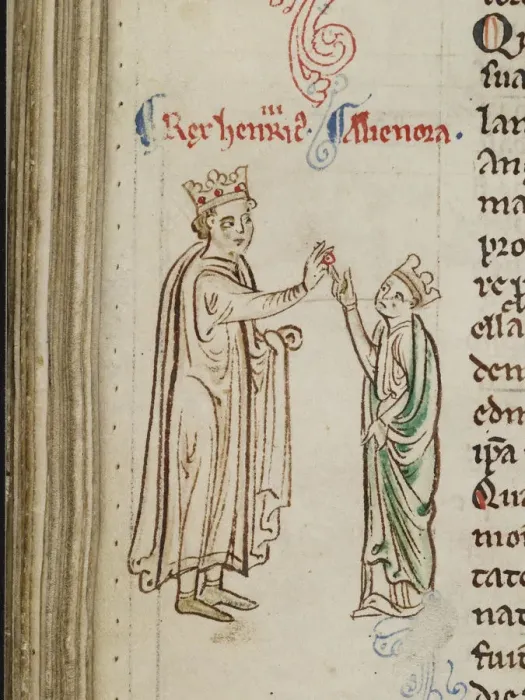 Rex henric' iii Alienora.
Qu
sua
lan
An
ma
pro
re p
ella
den
edm
ip̄a
Qua
mon
tate
nat
fuit
die